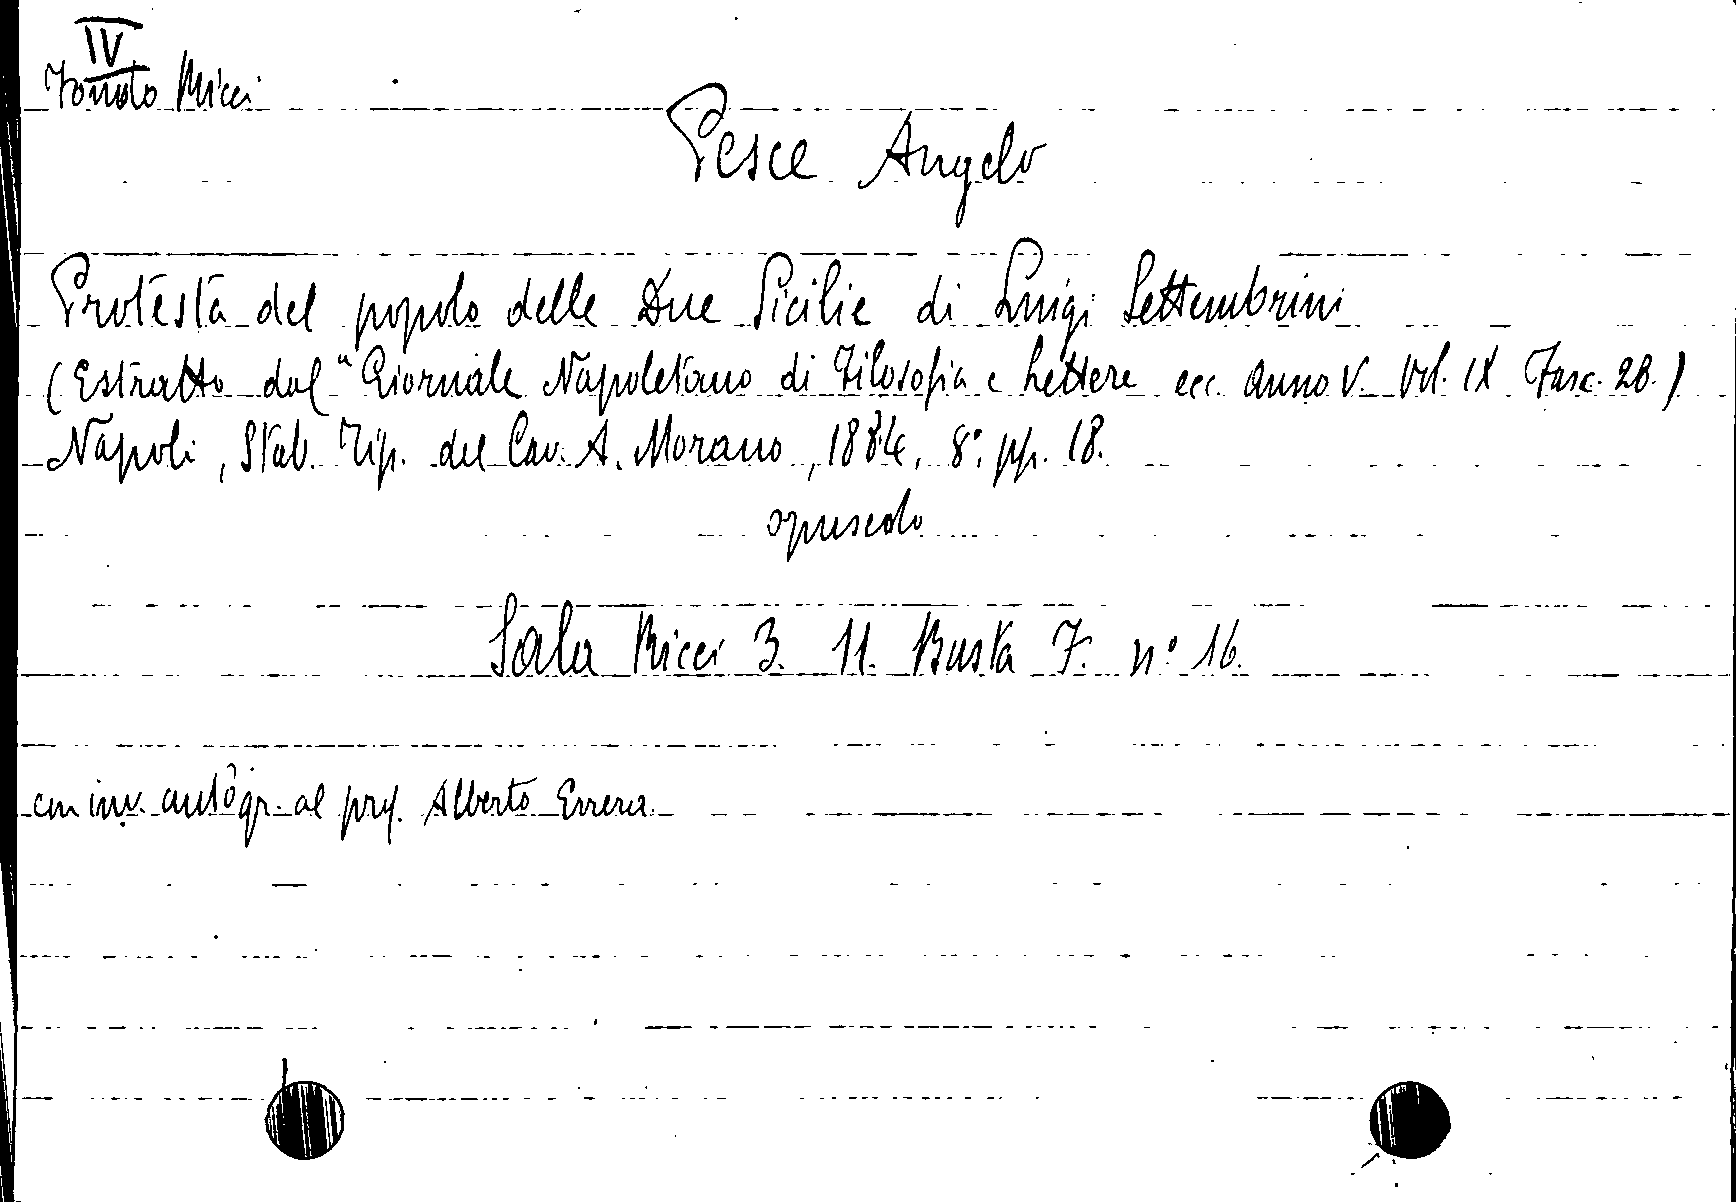 IV
Fondo Ricci
Pesce Angelo
Protesta del popolo delle Due Sicilie di Luigi Settembrini
(Estratto dal "Giornale Napoletano di Filosofia e Lettere ecc. Anno V. Vol. IX Fasc. 28.)
Napoli, Stab. Tip. del Cav. A. Morano, 1884, 8°. pp. 18.
opuscolo
Sala Ricci 3. 11. Busta 7. n° 16.
con inv. autogr. al prof. Alberto Errera